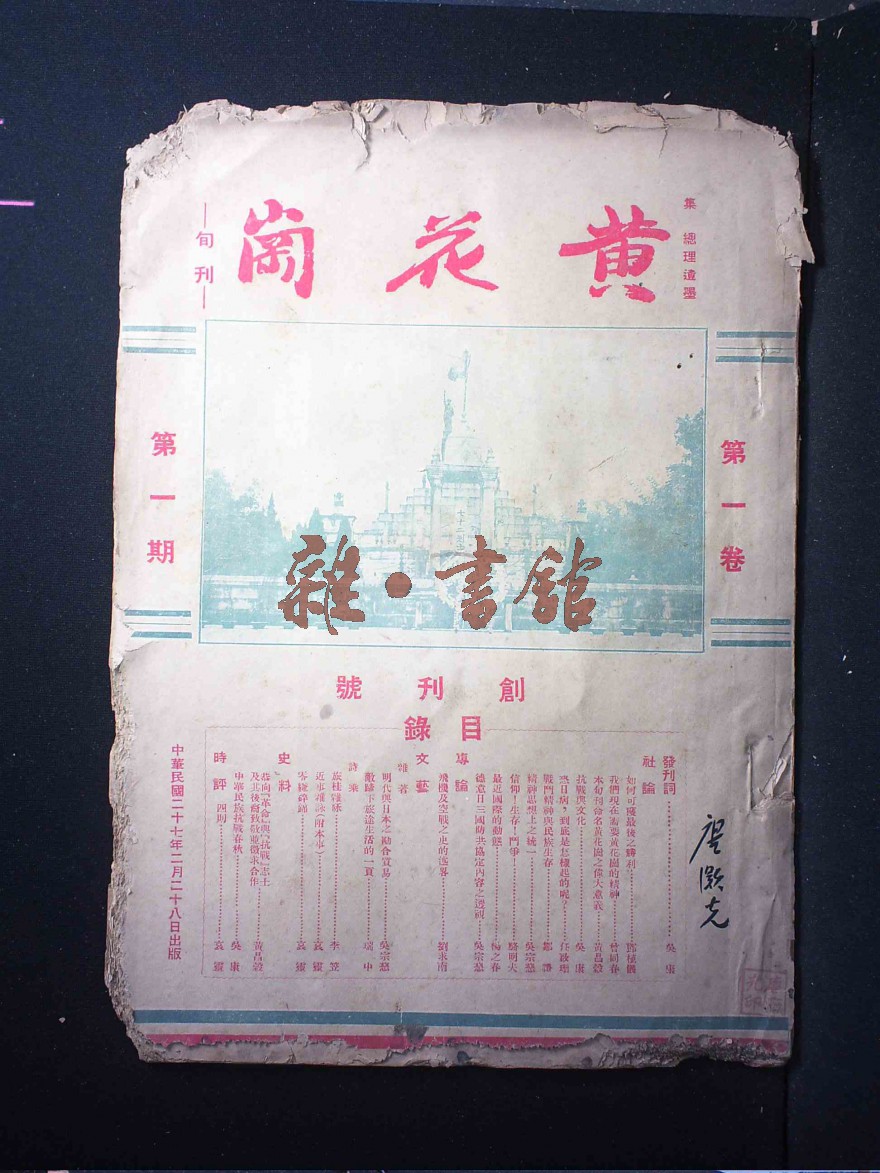 黄花崗
集 總理遺墨
—旬刊—
第一卷
第一期
雜·書館
創刊號
目錄
發刊詞…………吳康
社論
如何可獲最後之勝利…………鄧植儀
我們現在需要黃花崗的精神…………曾同春
本旬刊命名黃花崗之偉大意義…………黃昌穀
抗戰與文化…………吳康
恐日病，到底是怎樣起的呢？…………任啟珊
戰鬥精神與民族生存…………鄒謙
精神思想上之統一…………吳宗慈
信仰！生存！鬥爭！…………駱明夫
最近國際的動態…………楊之春
德意日三國防共協定內容之透視…………吳宗慈
專論
飛機及空戰之史的透界…………劉求南
文藝
雜著
明代與日本之勘合貿易…………吳宗慈
敵蹄下旅途生活的一頁…………瑞中
詩乘
旅桂雜詠…………李笠
近事雜詠（附本事）…………袁靈
零縑碎錦…………袁靈
史料
恭向『革命』與『抗戰』志士
及其後裔致敬並徵求合作…………黃昌穀
中華民族抗戰春秋…………吳康
時評 四則…………袁靈
中華民國二十七年二月二十八日出版